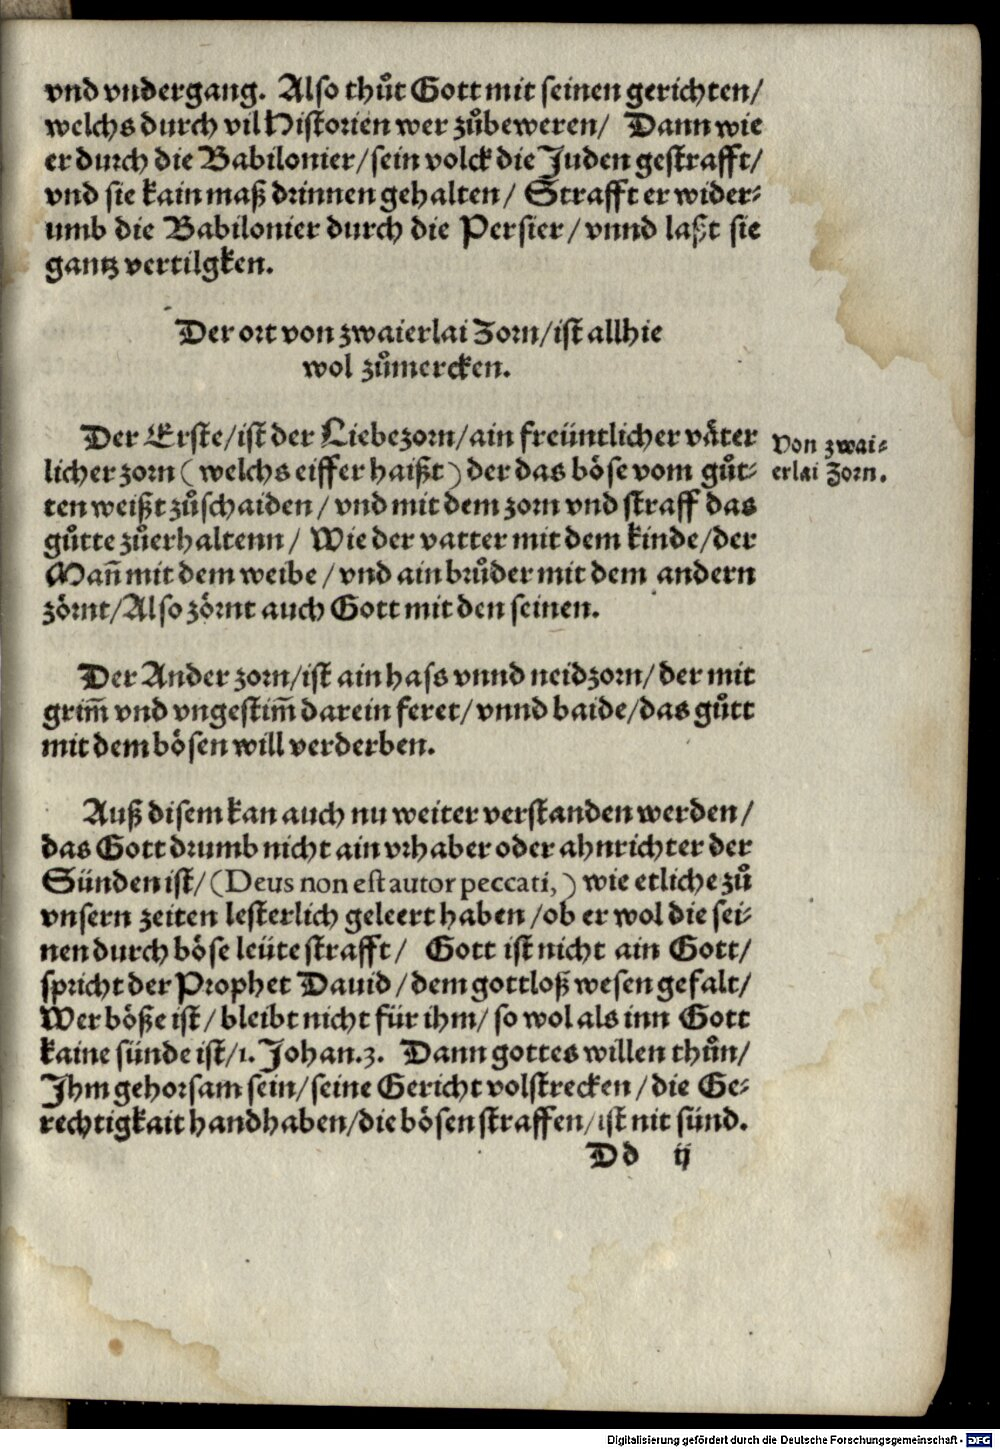 vnd vndergang. Also thůt Gott mit seinen gerichten/
welchs durch vil Historien wer zůbeweren/ Dann wie
er durch die Babilonier/sein volck die Juden gestrafft/
vnd sie kain maß drinnen gehalten/ Strafft er wider-
umb die Babilonier durch die Persier/vnnd laßt sie
gantz vertilgken.
Der ort von zwaierlai Zorn/ist allhie
wol zůmercken.
Der Erste/ist der Liebezorn/ain freüntlicher väter
licher zorn (welchs eiffer haißt) der das böse vom gůt-
ten weißt zůschaiden/vnd mit dem zorn vnd straff das
gůtte zůerhaltenn/ Wie der vatter mit dem kinde/der
Man̄ mit dem weibe/vnd ain brůder mit dem andern
zörnt/Also zörnt auch Gott mit den seinen.
Von zwai-
erlai Zorn.
Der Ander zorn/ist ain hass vnnd neidzorn/der mit
grim̄ vnd vngestim̄ darein feret/vnnd baide/das gůtt
mit dem bösen will verderben.
Auß disem kan auch nu weiter verstanden werden/
das Gott drumb nicht ain vrhaber oder ahnrichter der
Sünden ist/(Deus non est autor peccati,) wie etliche zů
vnsern zeiten lesterlich geleert haben/ob er wol die sei-
nen durch böse leüte strafft/ Gott ist nicht ain Gott/
spricht der Prophet Dauid/dem gottloß wesen gefalt/
Wer böße ist/bleibt nicht für ihm/so wol als inn Gott
kaine sünde ist/1. Johan.3. Dann gottes willen thůn/
Ihm gehorsam sein/seine Gericht volstrecken/die Ge-
rechtigkait handhaben/die bösen straffen/ist nit sünd.
Dd ij
Digitalisierung gefördert durch die Deutsche Forschungsgemeinschaft - DFG